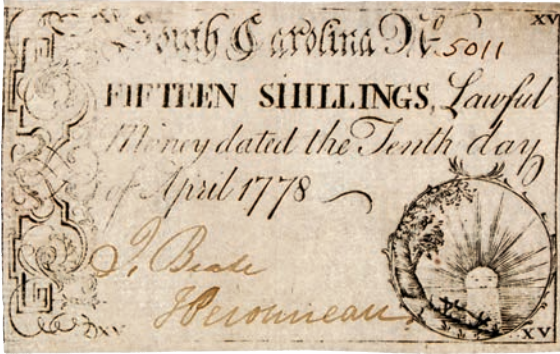 XV
South Carolina No. 5011
FIFTEEN SHILLINGS, Lawful
Money dated the Tenth day
of April 1778
J. Beale
H Peronneau
XV
XV